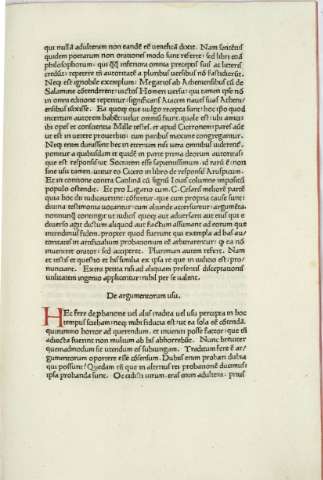 qui nullã adulteram non eandẽ eẽ veneficã dixit. Nam sentẽtiis
quidem poetarum non orationes modo sunt referte: sed libri etiã
philosophorum: qui quãq̃ inferiora omnia preceptis suis ac litteris
credũt: repetere tñ autoritatẽ a pluribus versibus nõ fastidierũt.
Neq̃ est ignobile exemplum: Megareos ab Atheniensibus cũ de
Salamine cõtenderent: uictos Homeri versu: qui tamen ipse nõ
in omni editione reperitur: significans Aiacem naues suas Atheni/
ensibus iũxisse. Ea quoq̃ que uulgo recepta sunt: hoc ipso quod
incertum autorem habẽt: uelut omnium fiunt. quale est: ubi amici:
ibi opes: et conscientia Mille testes. et apud Ciceronem: pares autẽ
ut est in uetere prouerbio: cum paribus maxime congregantur.
Neq̃ enim durassent hec in eternum nisi vera omnibus uiderentẽ.
ponitur a quibusdam et quidẽ in parte prima deorum autoritas:
que est ex responsis: ut Socratem esse sapientissimum. id rarũ ẽ: non
sine usu tamen. utitur eo Cicero in libro de responsis Aruspicum.
Et in contione contra Catilinã cũ signũ Iouis columne impositũ
populo ostendit. Et pro Ligario cum C. Cesaris meliorẽ partẽ
quia hoc dii iudicauerint: cõfitetur. que cum propria cause sunt:
diuina testimonia uocantur: cum aliunde accersuntur: argumẽta.
nonnunq̃ contingit: ut iudicis quoq̃ aut aduersarii aut eius qui e
diuerso agit dictum aliquod aut factum assumant ad eorum que
intendimus fidem. propter quod fuerunt qui exempla ad has auc/
toritates in artificialium probationum eẽ arbitrarentur: q̃ ea nõ
inueniret orator: sed acciperet. Plurimum autem refert. Nam
et testis et questio et his similia ex ipsa re que in iudicio est: pro/
nunciant. Extra petita nisi ad aliquam presentis disceptationis
utilitatem ingenio applicantur: nihil per se ualent.
De argumentorum usu.
HEc fere de probatione uel aliis tradita uel usu percepta in hoc
tempus sciebam: neq̃ mihi fiducia est: ut ea sola eẽ cõtendã.
quinimmo hortor ad querendum. et inueniri posse fateor: que tñ
adiecta fuerint non multum ab his abhorrebũt. Nunc breuiter
quemadmodum sit utendum eis subiungam. Traditum fere ẽ: ar/
gumentorum oportere esse cõfessum. Dubiis enim probari dubia
qui possunt? Quedam tñ que in alterius rei probationẽ ducimus:
ipsa probanda sunt. Occidisti uirum: eras enim adultera. prius